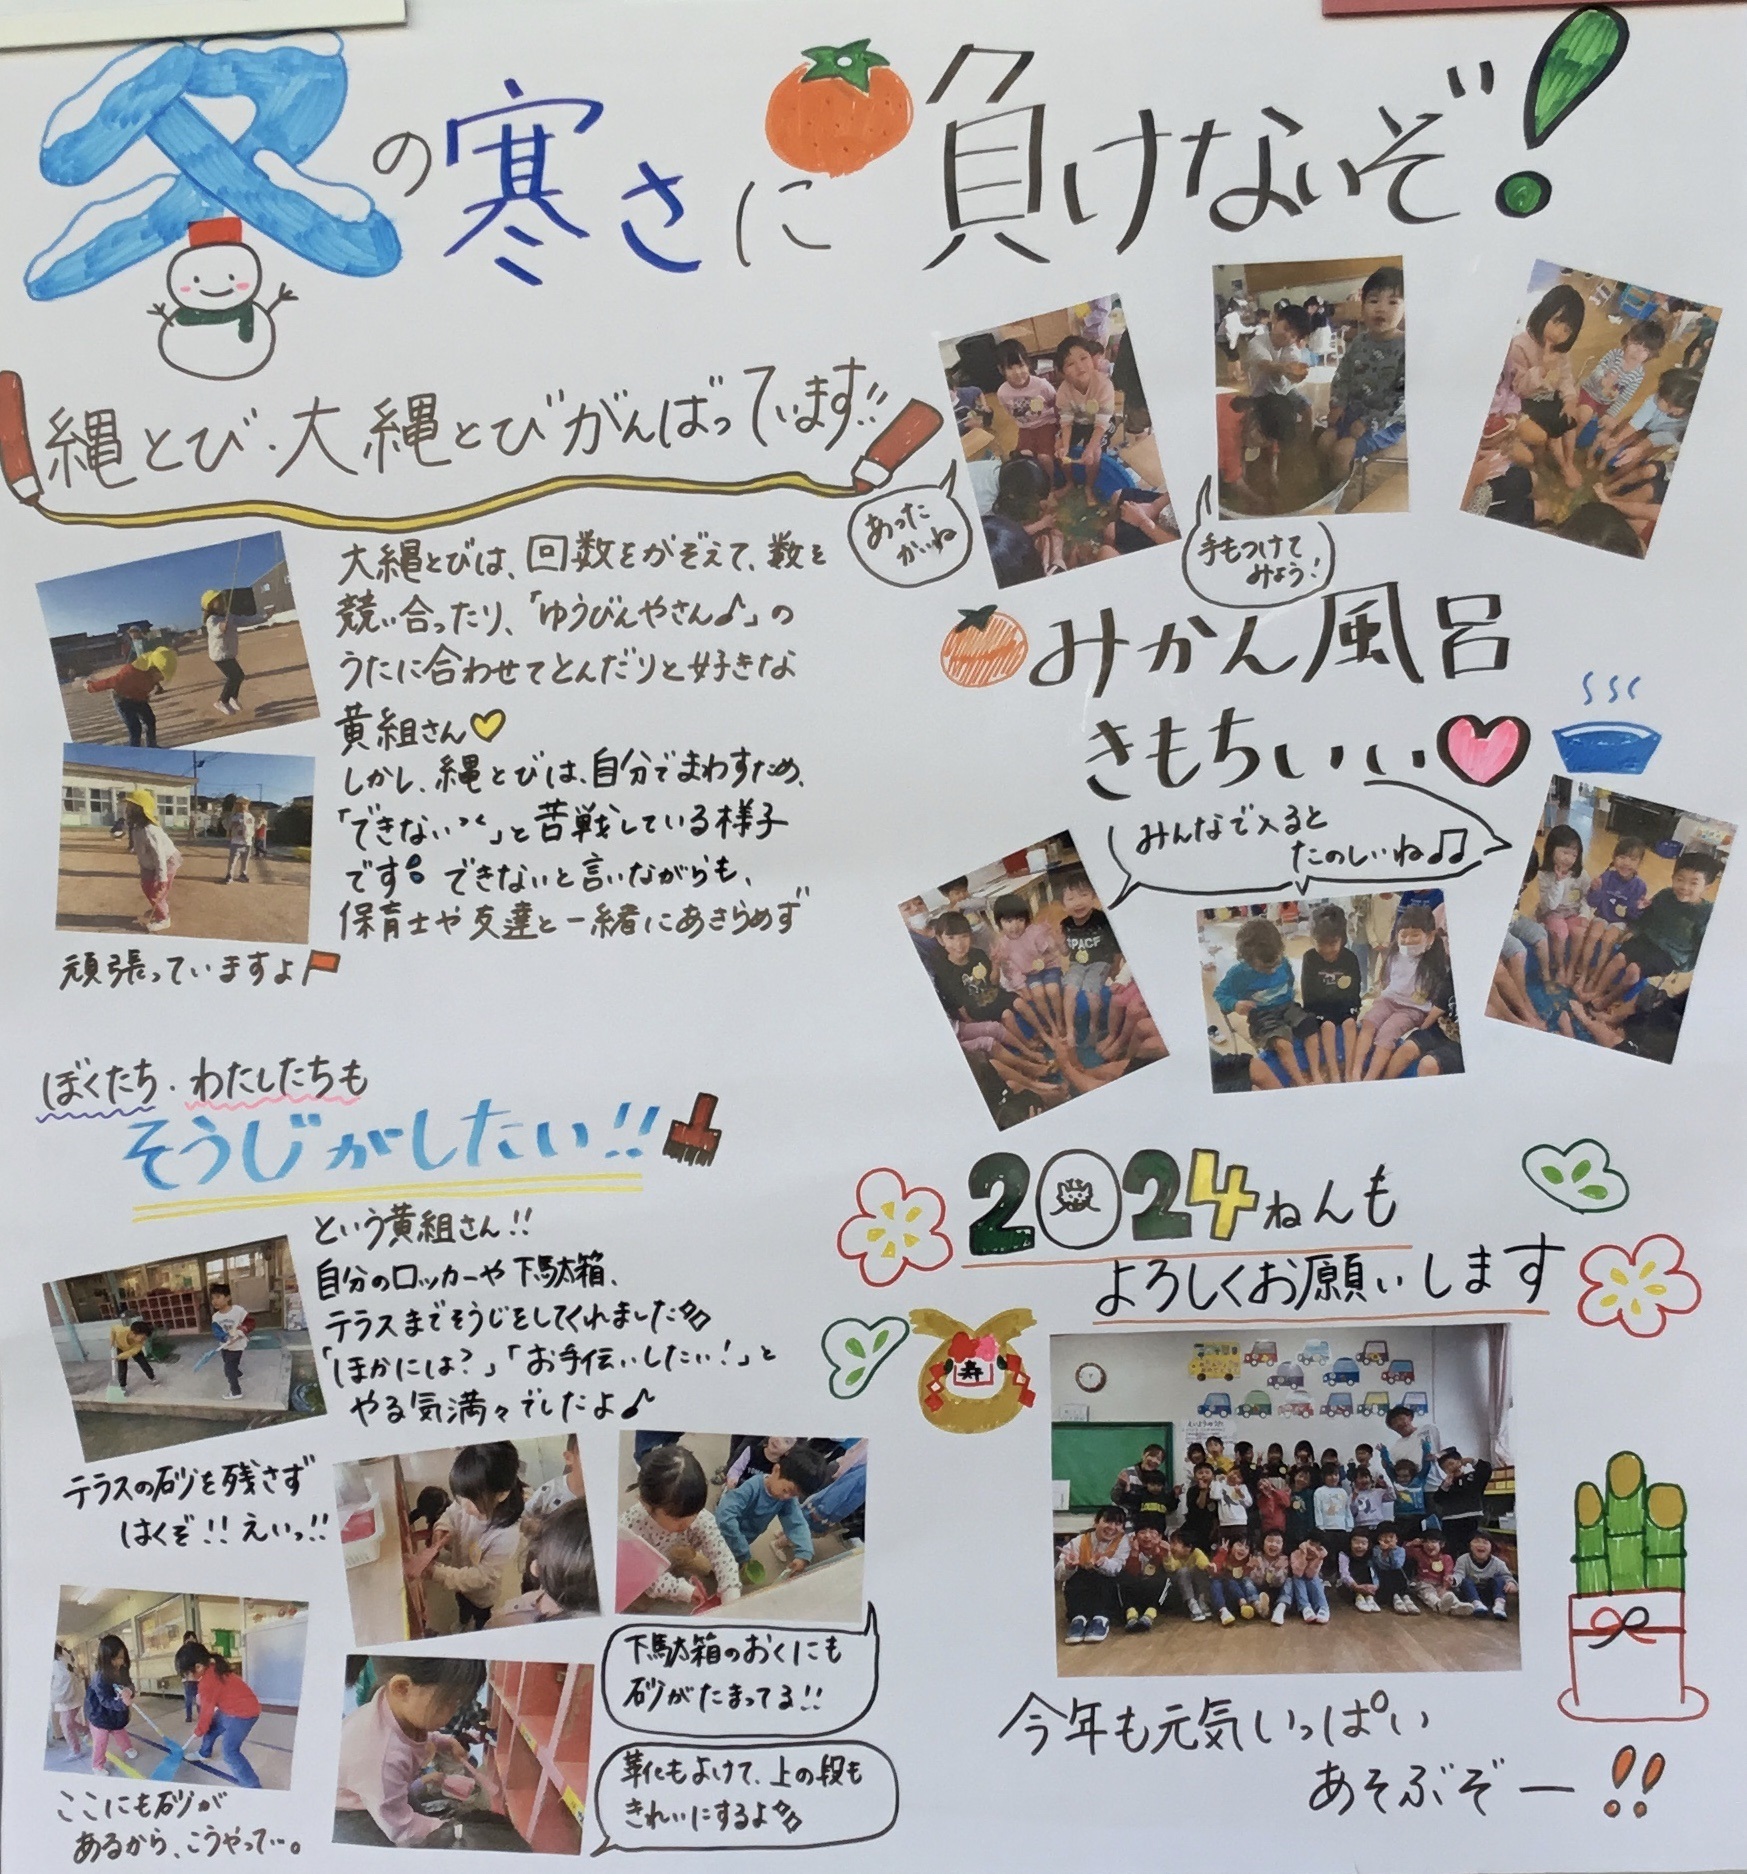 冬の寒さに負けないぞ!
縄とび・大縄とびがんばっています!!
大縄とびは、回数をかぞえて、数を
競い合ったり、「ゆうびんやさん♪」の
うたに合わせてとんだりと好きな
黄組さん♡
しかし、縄とびは、自分でまわすため、
「できない〜」と苦戦している様子
です。できないと言いながらも、
保育士や友達と一緒にあきらめず
頑張っていますよ
あった
かいね
手もつけて
みよう!
みかん風呂
きもちいい♡
みんなで入ると
たのしいね♫
ぼくたち・わたしたちも
そうじがしたい!!
という黄組さん!!
自分のロッカーや下駄箱、
テラスまでそうじをしてくれました
「ほかには?」「お手伝いしたい!」と
やる気満々でしたよ♪
テラスの砂を残さず
はくぞ!!えいっ!!
下駄箱のおくにも
砂がたまってる!!
靴もよけて、上の段も
きれいにするよ
ここにも砂が
あるから、こうやって…。
2024ねんも
よろしくお願いします
寿
SPACE
今年も元気いっぱい
あそぶぞー!!